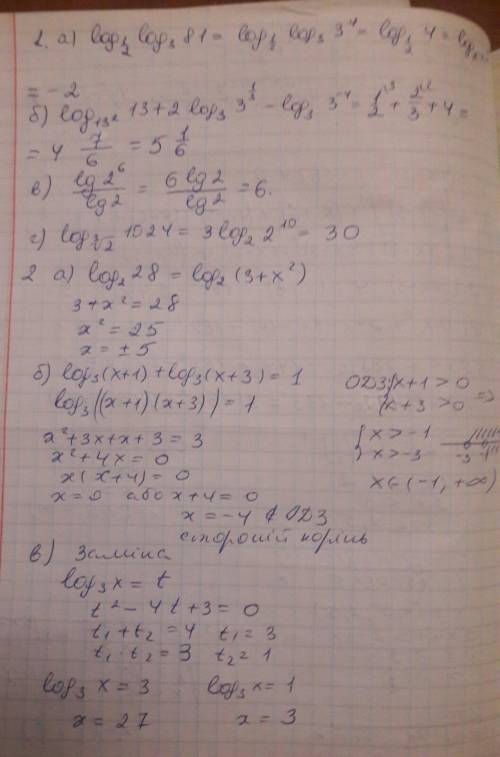 1. а) log_{1/2} log₃ 81 = log_{1/2} log₃ 3⁴ = log_{1/2} 4 =
= -2
б) log_{13²} 13 + 2 log₃ 3^{1/3} - log₃ 3⁻⁴ = 1/2 + 2/3 + 4 =
= 4 7/6 = 5 1/6
в) lg 2⁶ / lg 2 = 6 lg 2 / lg 2 = 6.
г) log_{∛2} 1024 = 3 log₂ 2¹⁰ = 30
2 а) log₂ 28 = log₂ (3+x²)
3+x² = 28
x² = 25
x = ±5
б) log₃(x+1) + log₃(x+3) = 1
log₃((x+1)(x+3)) = 1
x²+3x+x+3 = 3
x²+4x = 0
x(x+4) = 0
x = 0 або x+4 = 0
x = -4 ∉ ОДЗ
сторонній корінь
ОДЗ: { x+1 > 0
{ x+3 > 0 =>
{ x > -1
{ x > -3 -3 -1
x ∈ (-1, +∞)
в) Заміна
log₃ x = t
t² - 4t + 3 = 0
t₁ + t₂ = 4 t₁ = 3
t₁ · t₂ = 3 t₂ = 1
log₃ x = 3 log₃ x = 1
x = 27 x = 3